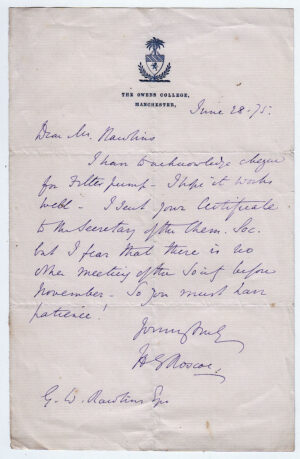 THE OWENS COLLEGE,
MANCHESTER,
June 28 - 75.
Dear Mr. Rawlins
I have to acknowledge cheque
for Filter pump - I hope it works
well - I sent your Certificate
to the Secretary of the Chem. Soc.
but I fear that there is no
other meeting of the Socy before
November - So you must have
patience!
Yours truly
H E Roscoe
G. W. Rawlins Esq